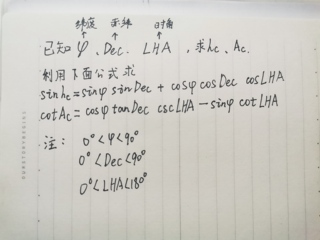 纬度 赤纬 时角
已知 φ、Dec、LHA，求hc、Ac.
利用下面公式求
sinhc=sinφ sinDec + cosφ cosDec cosLHA
cotAc=cosφ tanDec cscLHA－sinφ cotLHA
注：0°<φ<90°
0°<Dec<90°
0°<LHA<180°